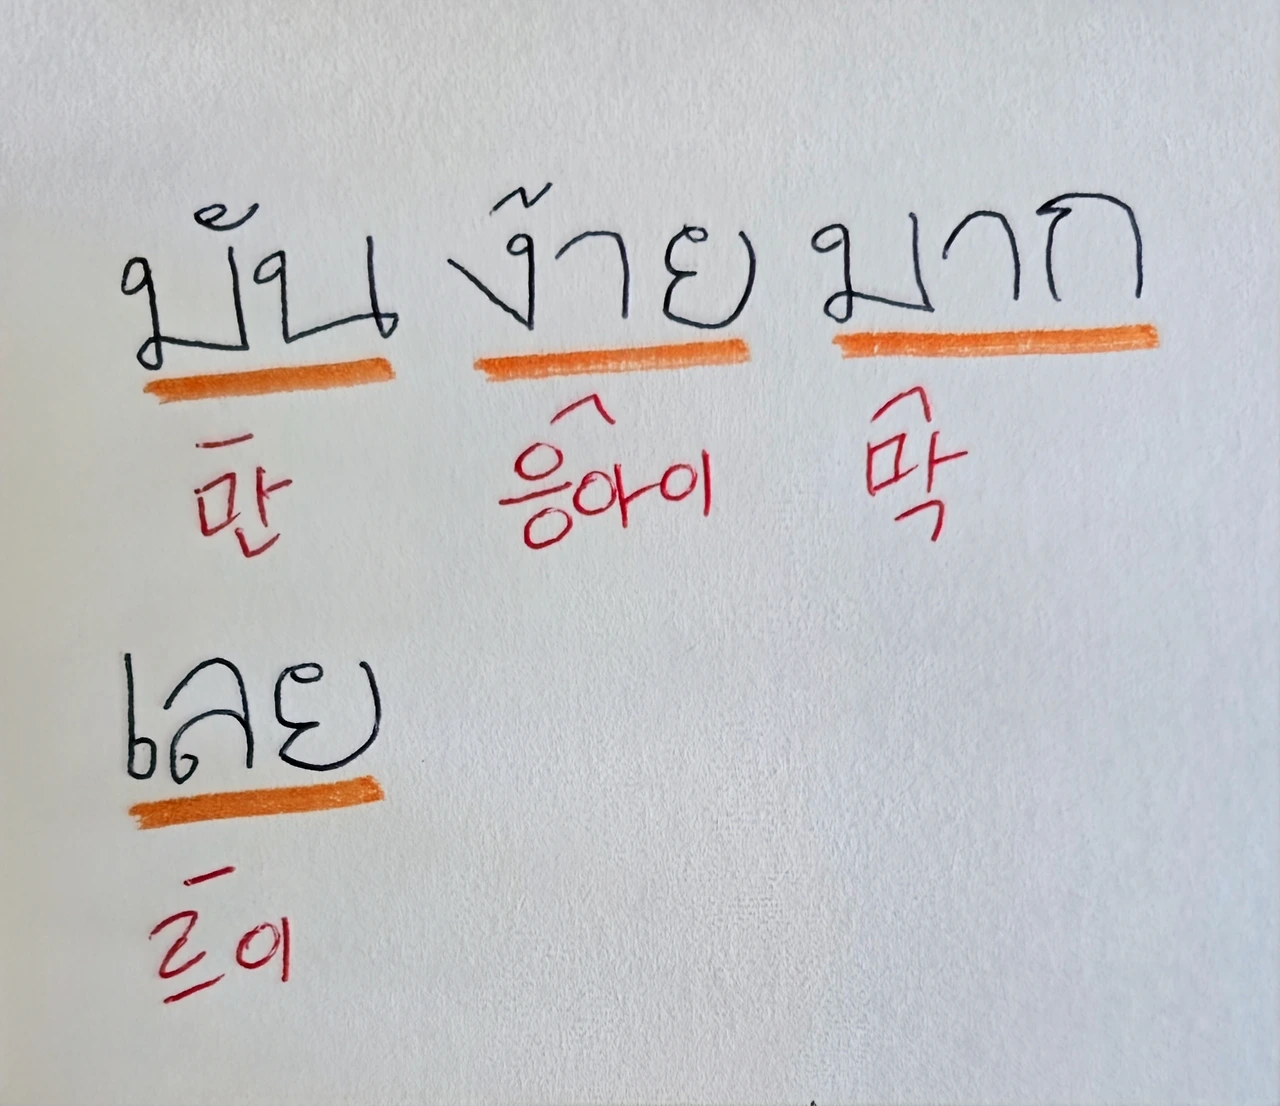 มัน ง๊าย มาก
만 응아이 막
เลย
르이